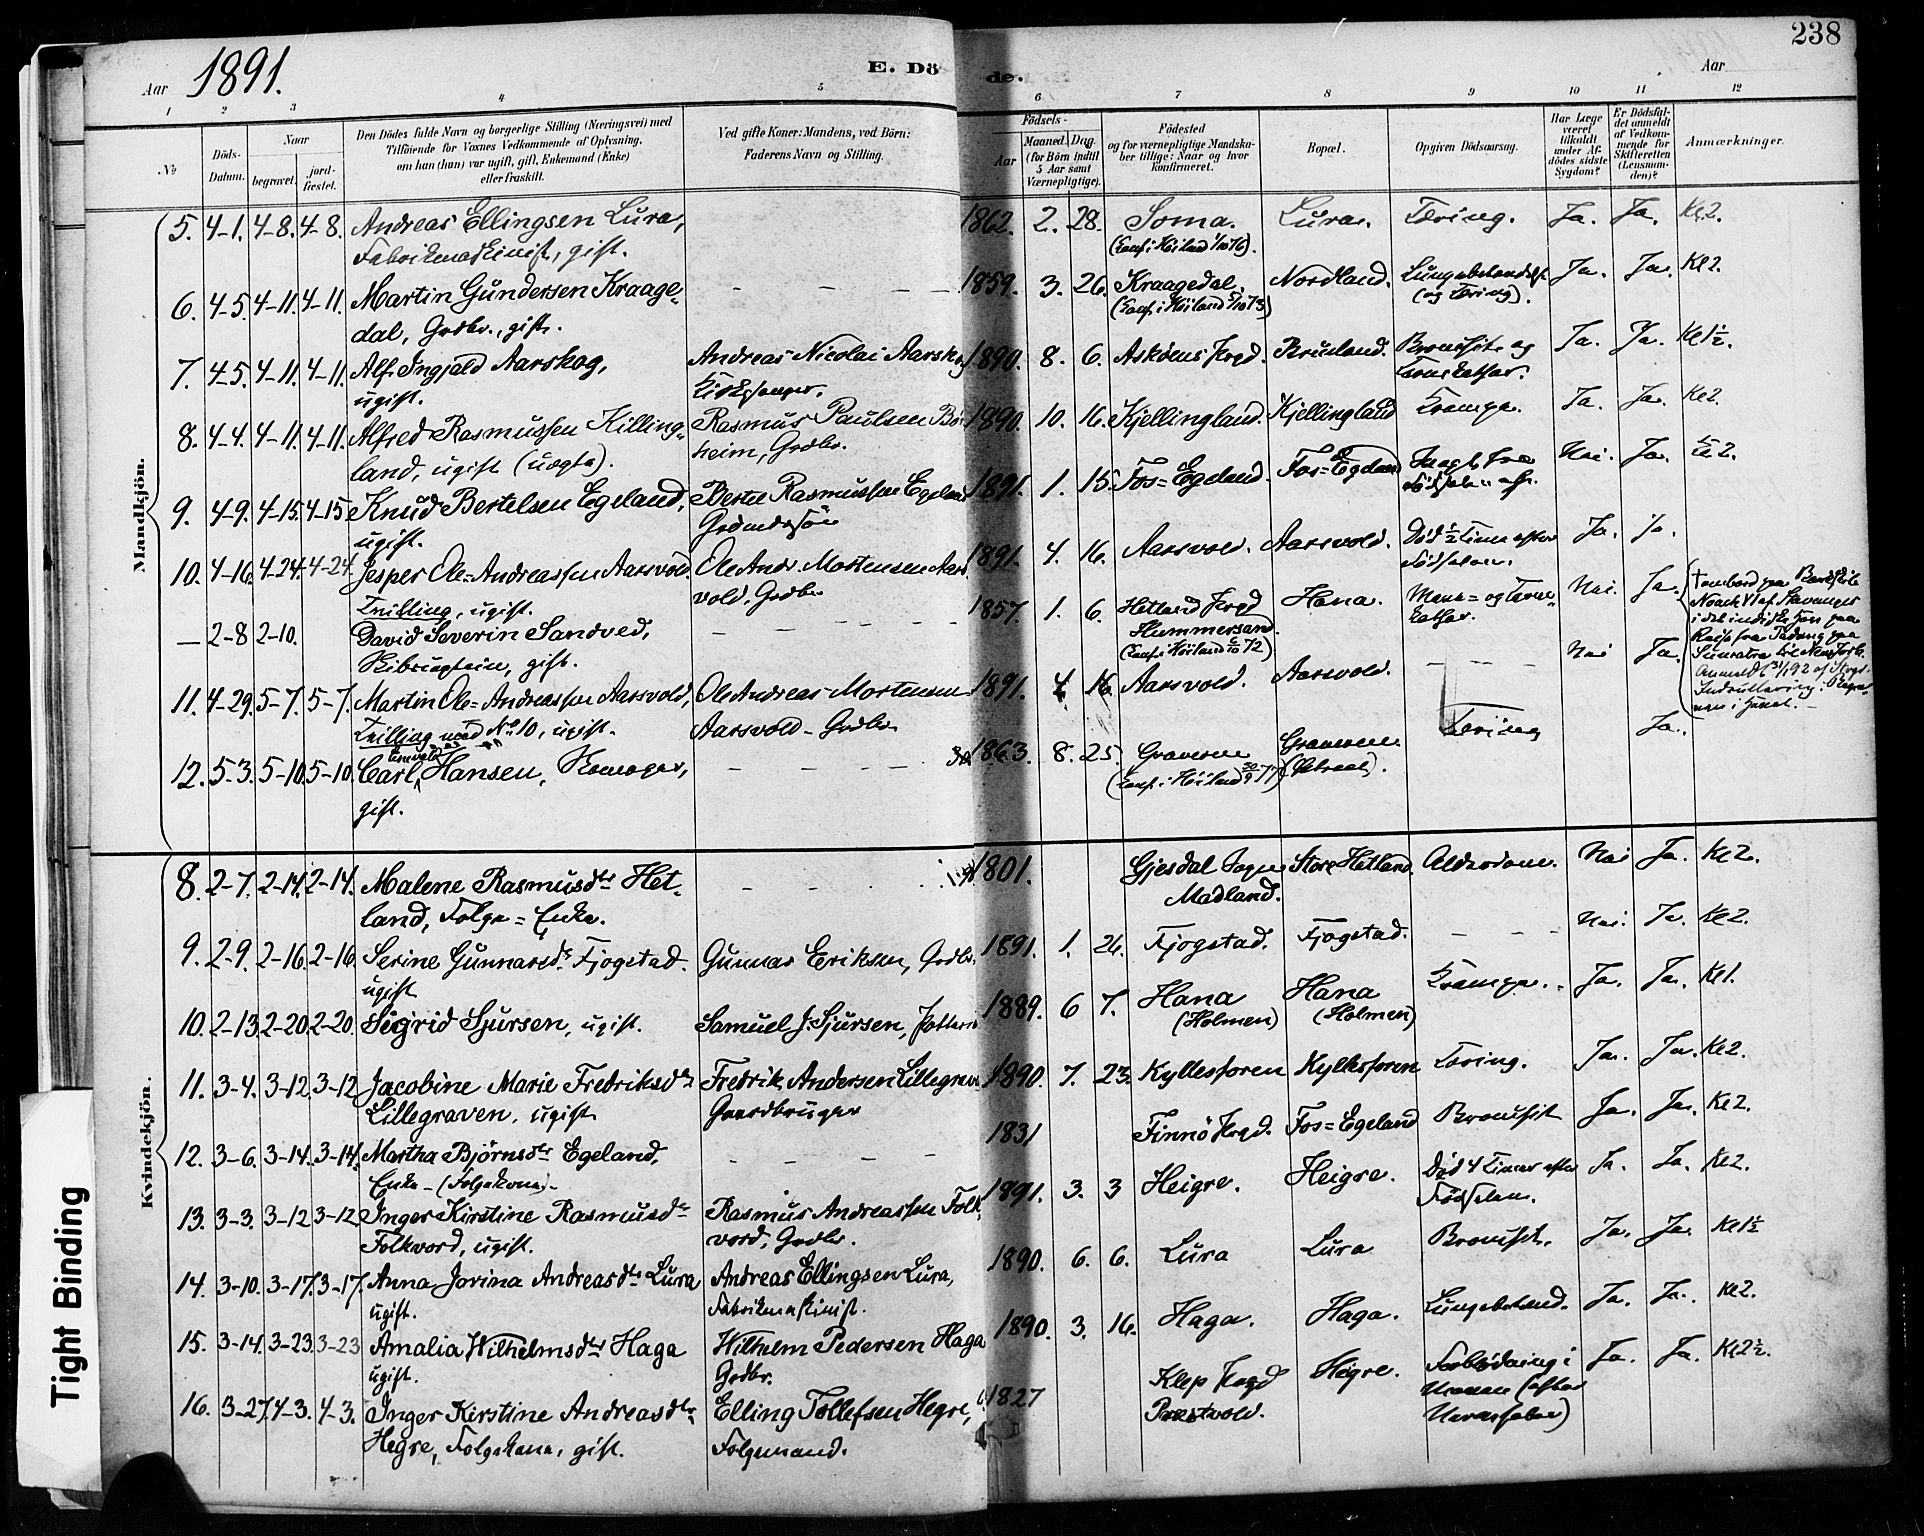 238
Aar 1891.
E. Döde.
Aar
1 2 3 4 5 6 7 8 9 10 11 12
No
Döds-Datum.
Naar
begravet.
jordfæstet.
Den Dödes fulde Navn og borgerlige Stilling (Næringsvei) med
Tilföiende for Voxnes Vedkommende af Oplysning,
om han (hun) var ugift, gift, Enkemand (Enke)
eller fraskilt.
Ved gifte Koner: Mandens, ved Börn:
Faderens Navn og Stilling.
Födsels-
Aar
Maaned. Dag.
(for Börn indtil
5 Aar samt
Værnepligtige).
Födested
og for værnepligtige Mandskaber tillige: Naar og hvor
konfirmeret.
Bopæl.
Opgiven Dödsaarsag.
Har Læge
været
tilkaldt
under Afdödes sidste
Sygdom?
Er Dödsfaldet anmeldt
af Vedkommende for
Skifteretten
(Lensmanden)?
Anmærkninger.
Mandkjön.
5. 4-1. 4-8. 4-8. Andreas Ellingsen Lura, 1862. 2. 28. Soma. Lura. Tæring. Ja. Ja. Kl 2.
Fabrikmaskinist, gift. (Conf. i Höiland 1/10 76).
6. 4-5. 4-11. 4-11. Martin Gundersen Kraage- 1859. 3. 26. Kraagedal. Nordland. Ja. Ja. Kl 2.
dal, Grdbr., gift. (Conf. i Höiland 5/10 73) (og Tæring).
7. 4-5. 4-11. 4-11. Alf Ingjald Aarskog, Andreas Nicolai Aarskog 1890. 8. 6. Asköens Prgd. Bruland. Bronchit og Ja. Ja. Kl 1½.
ugift. Kirkesanger.
8. 4-4. 4-11. 4-11. Alfred Rasmussen Killing- Rasmus Paulsen 1890. 10. 16. Kjellingland. Kjellingland Krampe. Ja. Ja. Kl 2.
land, ugift (uægte). heim, Grdbr.
9. 4-9. 4-15. 4-15. Knud Bertelsen Egeland, Bertel Rasmussen Egeland 1891. 1. 15. Fos=Egeland. Fos=Egeland Svag fra Nei. Ja. Kl 2.
ugift. Grdmdssön Födselen af.
10. 4-16. 4-24. 4-24. Jesper Ole=Andreassen Aarsvold. Ole Andr. Mortensen Aars- 1891. 4. 16. Aarsvold. Aarsvold. Död ½ Time efter Ja. Ja.
Tvilling, ugift. vold. Grdbr Födselen.
— 2-8 2-10. David Severin Sandved, 1857. 1. 6. Hetland Prgd Hana. Mave= og Tarm- Nei. Ja.
Skibsugtein, gift. Hummersand. (Conf. i Höiland 6/10 72) kathar.
† ombord paa Barkskib
Noach VI af Stavanger
i det indiske Hav paa
Reise fra Padang paa
Sumatra til New York.
11. 4-29. 5-7. 5-7. Martin Ole=Andreassen Aarsvold, Ole Andreas Mortensen 1891. 4. 16. Aarsvold. Aarsvold. Nei Ja.
Tvilling med No 10, ugift. Aarsvold - Grdbr
12. 5-3. 5-10. 5-10. Carl Hansen, gift. 1863. 8. 25. Graveren Graveren Tæring Ja.
(Conf. i Höiland 30/9 77)
Kvindekjön.
8. 2-7. 2-14. 2-14. Malene Rasmusdtr Het- 1801. Gjesdal Sogn Store Hetland. Alderdom. Nei Ja. Kl 2.
land, Folge=Enke. Madland.
9. 2-9. 2-16. 2-16. Serine Gunnarsdtr Fjogstad. Gunnar Eriksen, Grdbr. 1891. 1. 26. Fjogstad. Fjogstad. Nei. Ja. Kl 2.
ugift
10. 2-13. 2-20. 2-20. Sigrid Sjursen, ugift. Samuel J. Sjursen, 1889. 6 7. Hana Hana Krampe. Ja. Ja. Kl 1.
(Holmen) (Holmen)
11. 3-4. 3-12. 3-12. Jacobine Marie Fredriksdtr Fredrik Andersen Lillegraven 1890. 7. 23. Kyllesforen Kyllesforen Tæring. Ja. Ja. Kl 2.
Lillegraven. ugift Gaardbruger
12. 3-6. 3-14. 3-14. Martha Bjørnsdtr Egeland, 1831 Finnö Prgd. Fos=Egeland Bronchit Ja. Ja. Kl 2.
Enke - (Folgekone) -
13. 3-3. 3-12. 3-12 Inger Kirstine Rasmusdtr Rasmus Andreassen Folk- 1891. 3. 3 Heigre. Heigre. Död 4 Timer efter Ja. Ja. Kl 2.
Folkvord, ugift. vord, Grdbr. Födselen.
14. 3-10. 3-17. 3-17. Anna Jovina Andreasdtr Lura Andreas Ellingsen Lura, 1890. 6. 6. Lura Lura Bronchit. Ja. Ja. Kl 1½
ugift. Fabrikmaskinist.
15. 3-14. 3-23. 3-23 Amalia Wilhelmsdtr Haga Wilhelm Pedersen Haga 1890. 3. 16. Haga. Haga. Lungebetænd. Ja. Ja. Kl 2.
ugift. Grdbr.
16. 3-27. 4-3. 4-3. Inger Kirstine Andreasdtr Elling Tollefsen Hegre, 1827 Klep Prgd Högre. Forblödning i Ja. Ja. Kl 2½.
Hegre, Folgekone, gift. Folgemand. Prestvold. (efter
Tight Binding